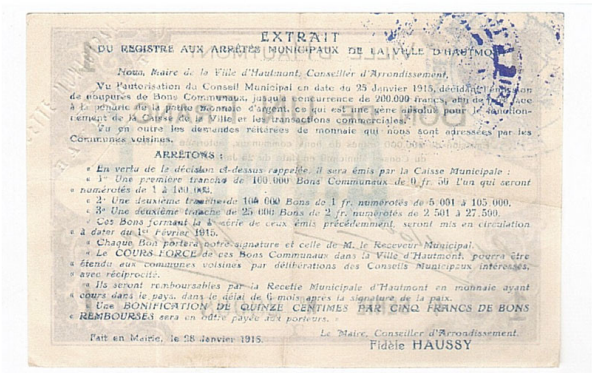 EXTRAIT
DU REGISTRE AUX ARRÊTÉS MUNICIPAUX DE LA VILLE D'HAUTMONT
Nous, Maire de la Ville d'Hautmont, Conseiller d'Arrondissement,
Vu l'autorisation du Conseil Municipal en date du 25 Janvier 1915, décidant l'émission
de coupures de Bons Communaux, jusqu'à concurrence de 200.000 francs, afin de
à la pénurie de petite monnaie d'argent, ce qui est une gêne absolue pour le fonction-
nement de la Caisse de la Ville et les transactions commerciales.
Vu en outre les demandes réitérées de monnaie qui nous sont adressées par les
Communes voisines.
ARRÊTONS :
« En vertu de la décision ci-dessus rappelée, il sera émis par la Caisse Municipale :
« 1° Une première tranche de 160.000 Bons Communaux de 0 fr. 50 l'un qui seront
numérotés de 1 à 160.000.
« 2° Une deuxième tranche de 100 000 Bons de 1 fr. numérotés de 5.001 à 105.000.
« 3° Une deuxième tranche de 25 000 Bons de 2 fr. numérotés de 2 501 à 27.500.
« Ces Bons formant la série de ceux émis précédemment, seront mis en circulation
« à dater du 1er Février 1915.
« Chaque Bon portera notre signature et celle de M. le Receveur Municipal.
« Le COURS FORCÉ de ces Bons Communaux dans la Ville d'Hautmont, pourra être
« étendu aux communes voisines par délibérations des Conseils Municipaux intéressés,
« avec réciprocité.
« Ils seront remboursables par la Recette Municipale d'Hautmont en monnaie ayant
« cours dans le pays, dans le délai de 6 mois après la signature de la paix.
« Une BONIFICATION DE QUINZE CENTIMES PAR CINQ FRANCS DE BONS
« REMBOURSÉS sera en outre payée aux porteurs. »
Fait en Mairie, le 28 Janvier 1915.
Le Maire, Conseiller d'Arrondissement.
Fidèle HAUSSY